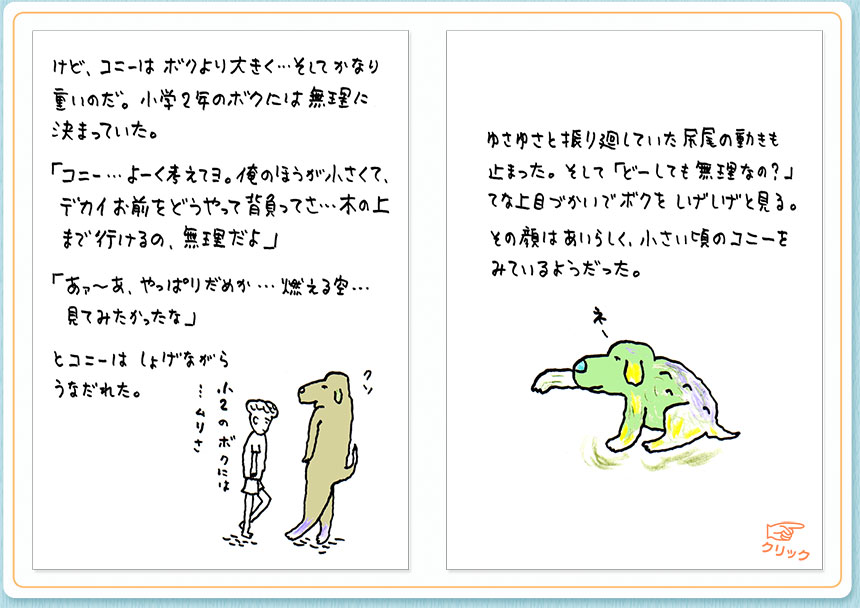 けど、コニーは ボクより大きく…そしてかなり
重いのだ。小学２年のボクには無理に
決まっていた。
「コニー…よーく考えてヨ。俺のほうが小さくて、
デカイお前をどうやって背負ってさ…木の上
まで行けるの、無理だよ」
「あァ〜あ、やっぱりだめか…燃える空…
見てみたかったな」
とコニーは しょげながら
うなだれた。
小２のボクには
…ムリさ
クソ
ゆさゆさと振り廻していた尻尾の動きも
止まった。そして「どーしても無理なの？」
てな上目づかいでボクを しげしげと見る。
その顔はあいらしく、小さい頃のコニーを
みているようだった。
ネ
クリック